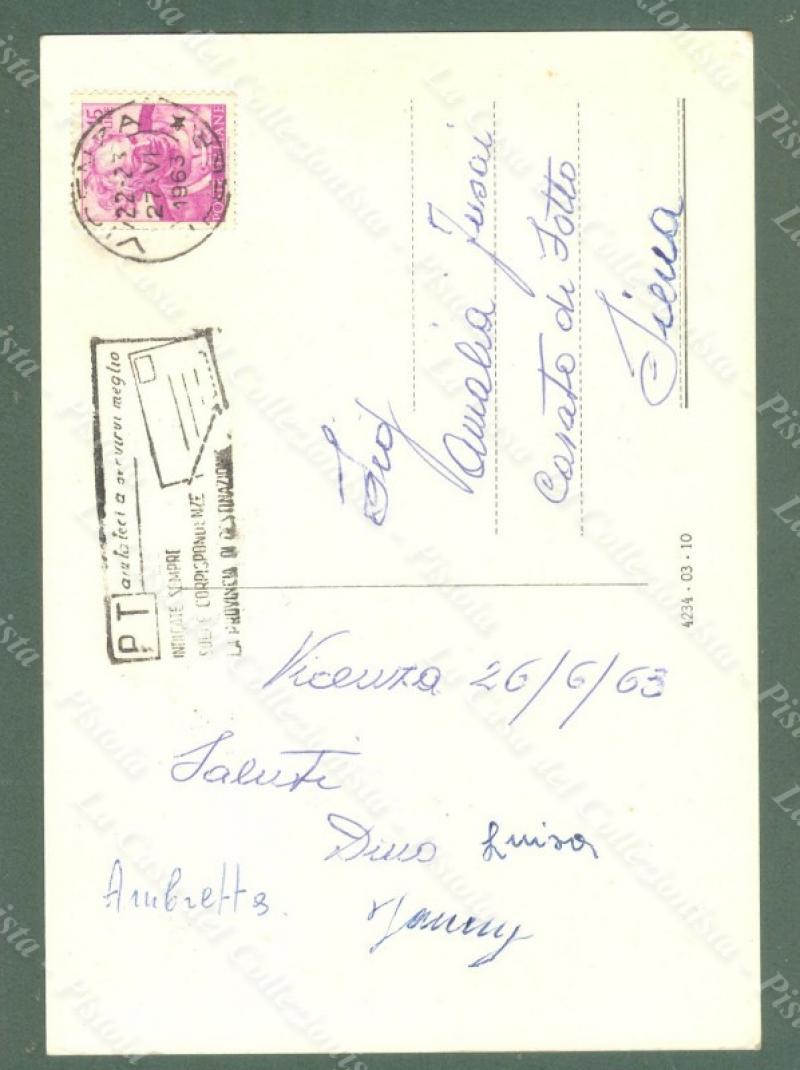 15
LIRE
POSTE ITALIANE
VICENZA
22-23
27 VI
1963
PT aiutateci a servirvi meglio
INDICATE SEMPRE
SULLE CORRISPONDENZE
LA PROVINCIA DI DESTINAZIONE
Sig
Amalia Fusai
Casato di Sotto
Siena
4234 - 03 - 10
Vicenza 26/6/63
Saluti
Dino Luisa
Ambretta.
La Casa del Collezionista - Pistoia